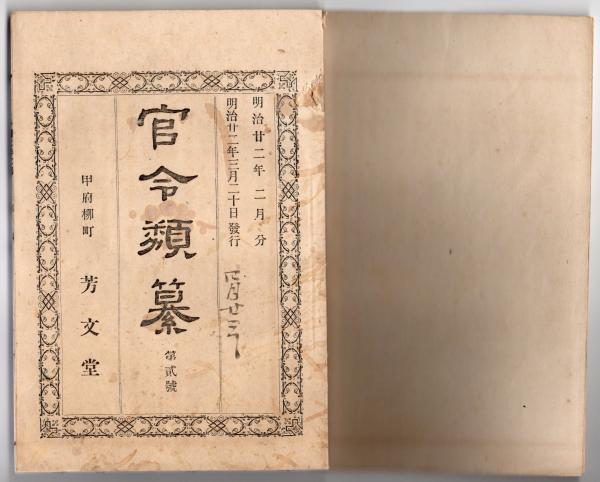 明治廿二年二月分
明治廿二年三月二十日發行
官令類纂
第貳號
甲府柳町 芳文堂